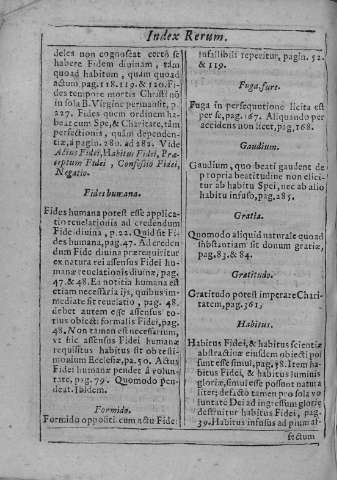 Index Rerum.
deles non cognoscat certò se
habere Fidem divinam, tàm
quoad habitum, quàm quoad
actum, pag. 118. 119. & 120. Fi-
des tempore mortis Christi nō
in sola B. Virgine permansit, p.
227. Fides quem ordinem ha-
beat cum Spe, & Charitate, tàm
perfectionis, quàm dependen-
tiæ, à pagin. 280. ad 282. Vide
Actus Fidei, Habitus Fidei, Præ-
ceptum Fidei, Confessio Fidei,
Negatio.
Fides humana.
Fides humana potest esse applica-
tio reuelationis ad credendum
Fide diuina, p. 22. Quid sit Fi-
des humana, pag. 47. Ad creden-
dum Fide diuina prærequiritur
ex natura rei assensus Fidei hu-
manæ reuelationis diuinæ, pag.
47. & 48. Ea notitia humana est
etiam necessaria ijs, quibus im-
mediatè sit reuelatio, pag. 48.
debet autem esse assensus to-
tius obiecti formalis Fidei, pag.
48. Non tamen est necessarium,
vt sic assensus Fidei humanæ
requisitus habitus sit ob testi-
monium Ecclesiæ, pa. 50. Actus
Fidei humanæ pendet à volun-
tate, pag. 79. Quomodo pen-
deat. Ibidem.
Formido.
Formido oppositi cum actu Fidei
infallibili reperitur, pagin. 52.
& 119.
Fuga, fure.
Fuga in persequutione licita est
per se, pag. 167. Aliquando per
accidens non licet, pag. 168.
Gaudium.
Gaudium, quo beati gaudent de
propria beatitudine non elici-
tur ab habitu Spei, nec ab alio
habitu infuso, pag. 285.
Gratia.
Quomodo aliquid naturale quoad
substantiam sit donum gratiæ,
pag. 83. & 84.
Gratitudo.
Gratitudo potest imperare Chari-
tatem, pag. 361.
Habitus.
Habitus Fidei, & habitus scientiæ
abstractiuæ eiusdem obiecti pos
sunt esse simul, pag. 38. Item ha-
bitus Fidei, & habitus luminis
gloriæ, simul esse possunt natura
liter; defacto tamen pro sola vo
luntate Dei ad ingressum gloriæ
destruitur habitus Fidei, pag.
39. Habitus infusus ad plura af-
fectum